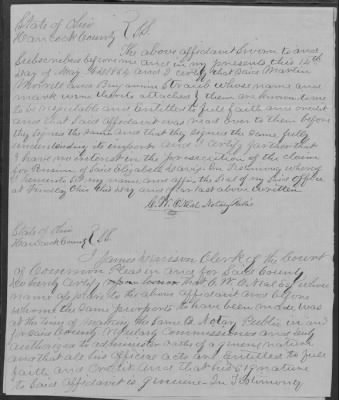 State of Ohio
Hancock County } SS.
The above affidavit Sworn to and
Subscribed before me and in my presents this 14th
day of May AD 1884 and I certify that Said Martin
and Benjamin Straub whose name and
mark were hereto attached & them are known to me
to be respectable and Entitled to full faith and credit
and that Said affidavit was read over to them before
they signed the same and that they signed the same fully
understanding its import and I certify further that
I have no interest in the prosecution of the claim
for Pension of Said Elizabeth In Testimony whereof
I hereunto Set my name and affix the Seal of my Said office
at Findlay Ohio this day and year last above written
Notary Public
State of Ohio
Hancock County } SS.
I James Clerk of the Court
of Common Pleas in and for Said County
do hereby Certify that whose
name appears to the above affidavit and before
whom the same purports to have been made was
at the time of making the same a Notary Public in and
for Said County & State duly Commissioned and duly
authorized to administer oaths of a general nature
and that all his official acts are Entitled to full
faith and Credit and that his signature
to Said Affidavit is genuine In Testimony